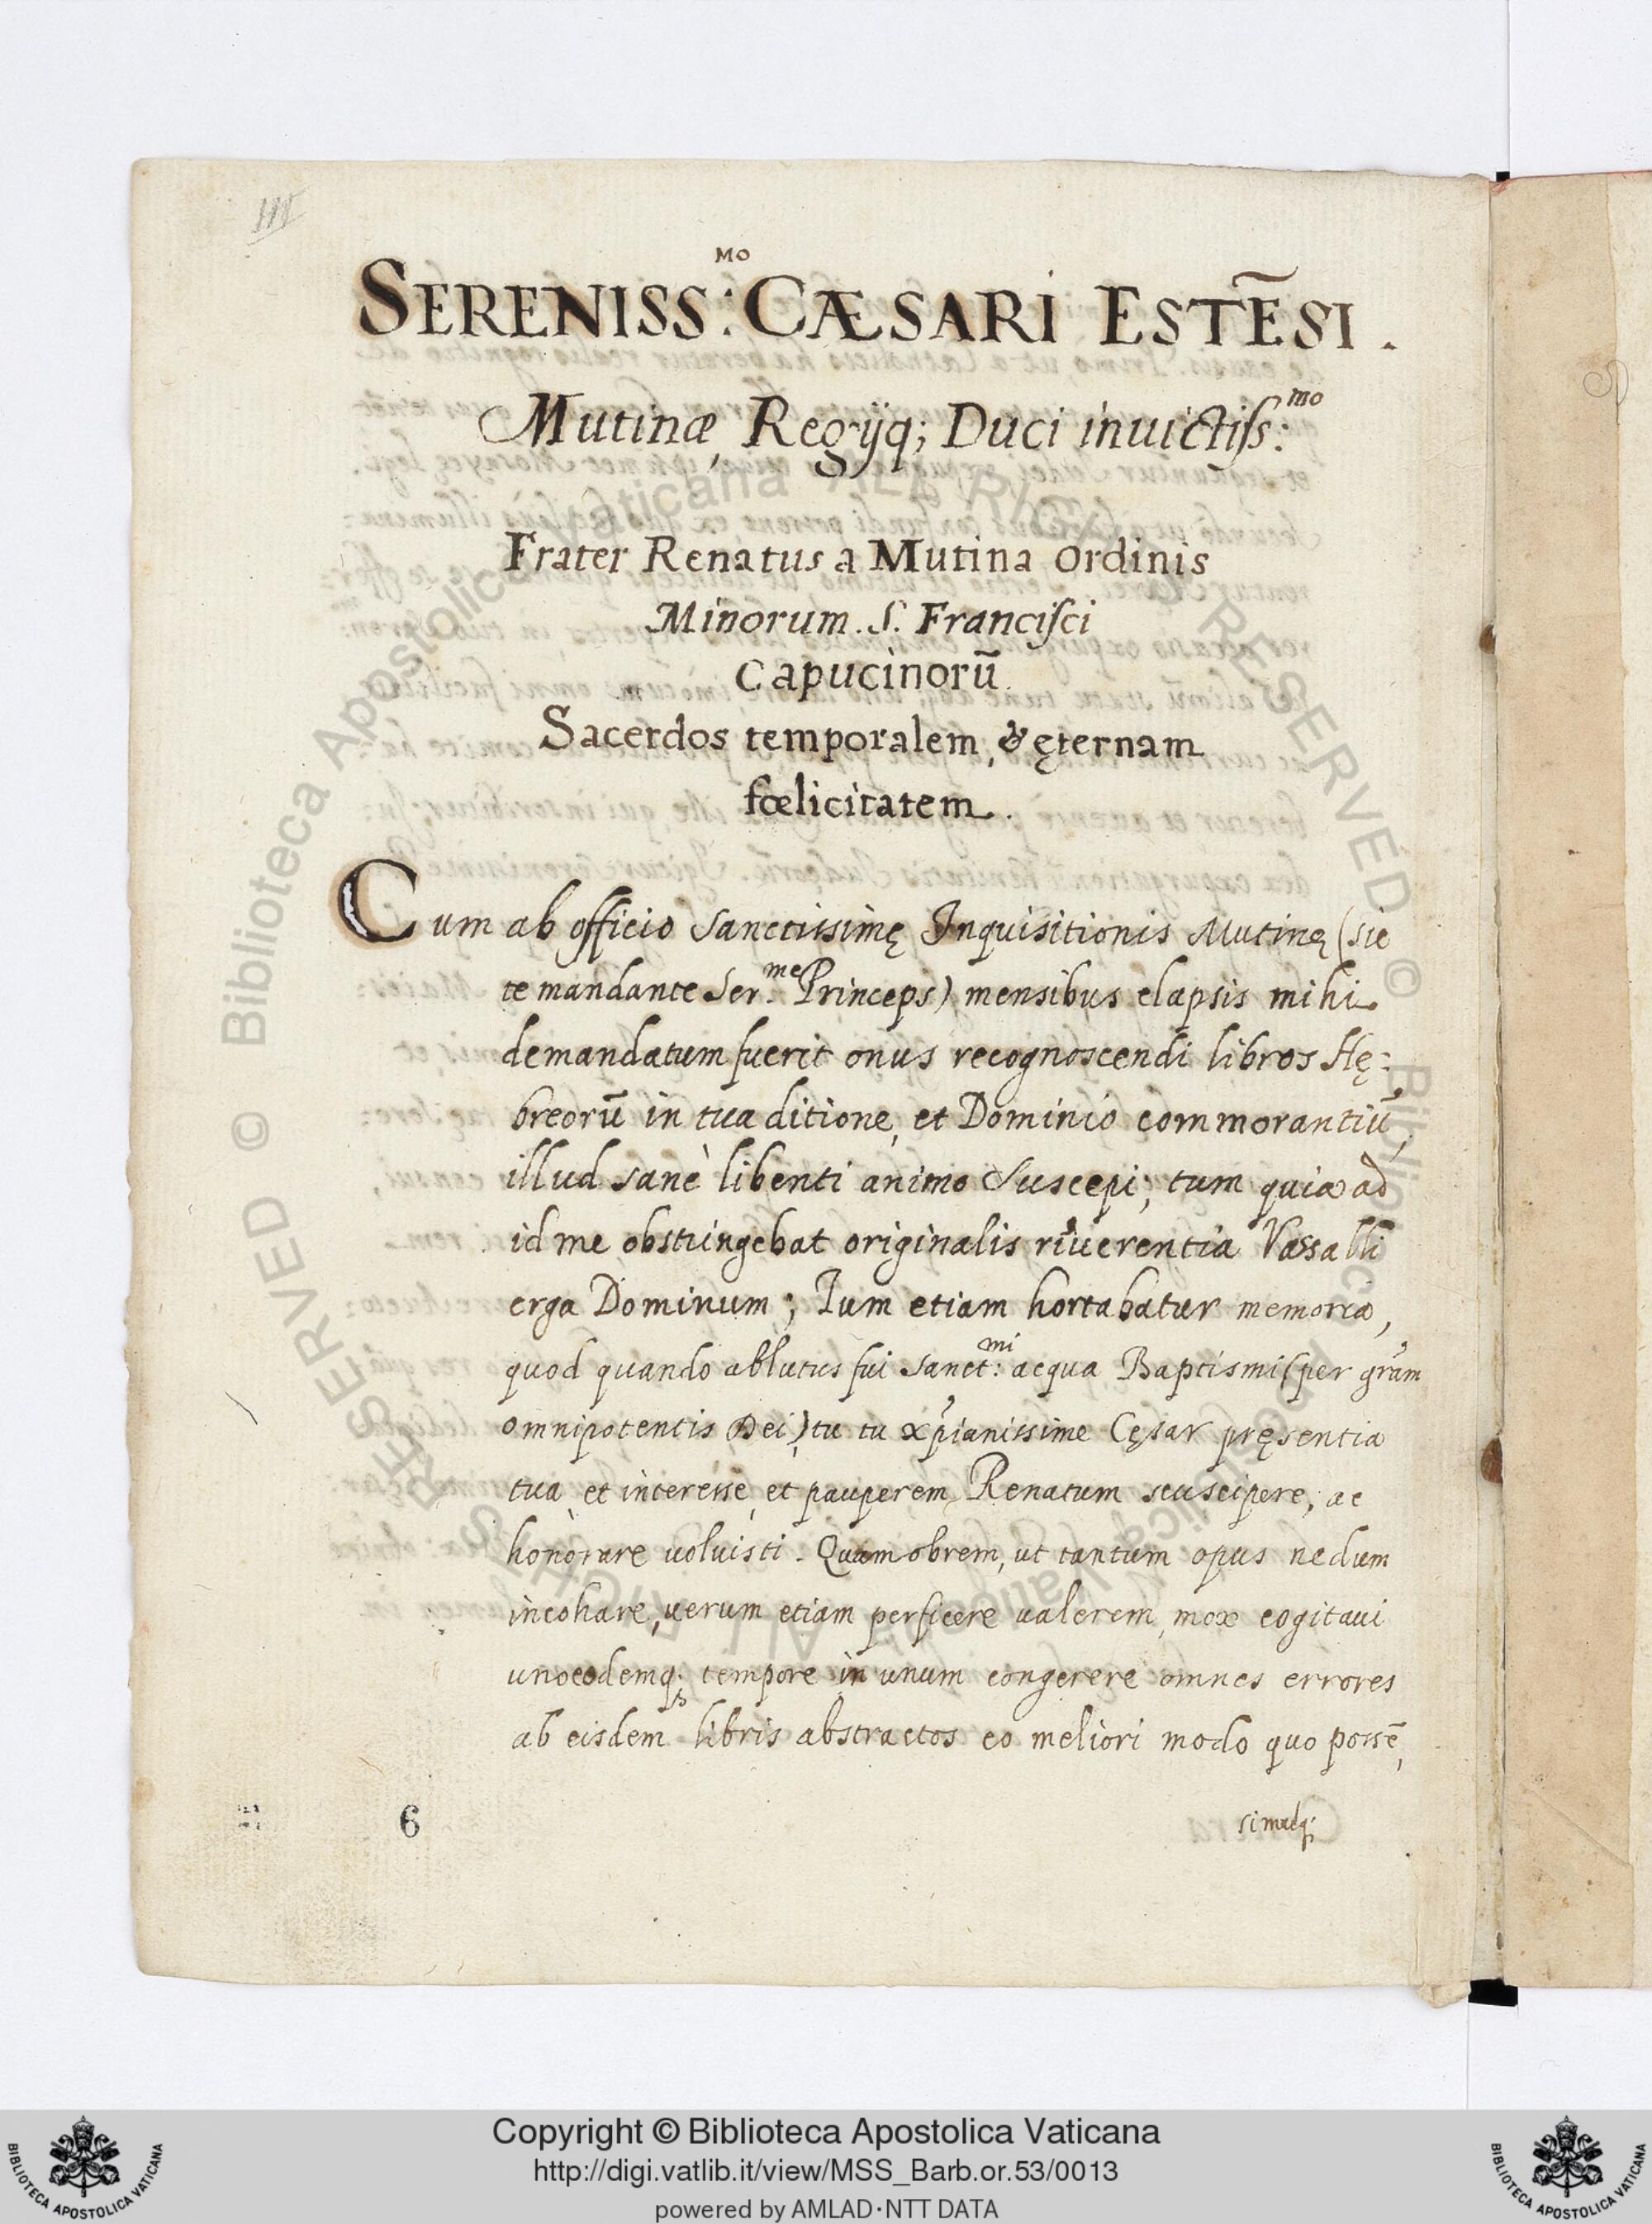 III
SERENISS:MO CÆSARI ESTE͞SI.
Mutinæ, Regijq; Duci inuictiſs:mo
Frater Renatus a Mutina ordinis
Minorum. S. Franciſci
Capucinorū.
Sacerdos temporalem, & ęternam
fœlicitatem.
Cum ab officio Sanctissimę Inquisitionis Mutinę (sic
te mandante Ser.me Princeps) mensibus elapsis mihi
demandatum fuerit onus recognoscendi libros Hę:
breorū in tua ditione, et Dominio commorantiū,
illud sanè libenti animo suscepi; tum quia ad
id me obstringebat originalis riuerentia Vassalli
erga Dominum; Tum etiam hortabatur memoria,
quod quando ablutus fui Sanct:mi acqua Baptismi (per gr̄am
omnipotentis Dei) tu tu xp̄ianissime Cęsar pręsentia
tua, et interesse, et pauperem Renatum suscipere, ac
honorare uoluisti. Quamobrem, ut tantum opus nedum
incohare, uerum etiam perficere ualerem, mox cogitaui
uno eodemq; tempore in unum congerere omnes errores
ab eisdem libris abstractos eo meliori modo quo possē,
simulq;
6
© Biblioteca Apostolica Vaticana ALL RIGHTS RESERVED © Biblioteca Apostolica Vaticana ALL RIGHTS RESERVED
Copyright © Biblioteca Apostolica Vaticana
http://digi.vatlib.it/view/MSS_Barb.or.53/0013
powered by AMLAD·NTT DATA
BIBLIOTECA APOSTOLICA VATICANA
BIBLIOTECA APOSTOLICA VATICANA